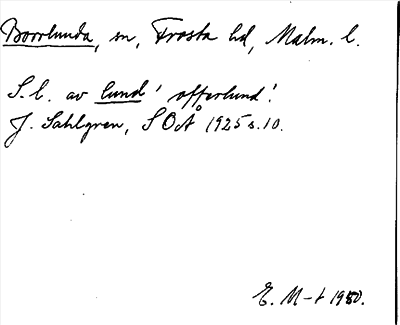 Borrlunda, sn, Frosta hd, Malm. l.
S.l. av lund 'offerlund'.
J. Sahlgren, SOÅ 1925 s. 10.
E. M-t 1950.